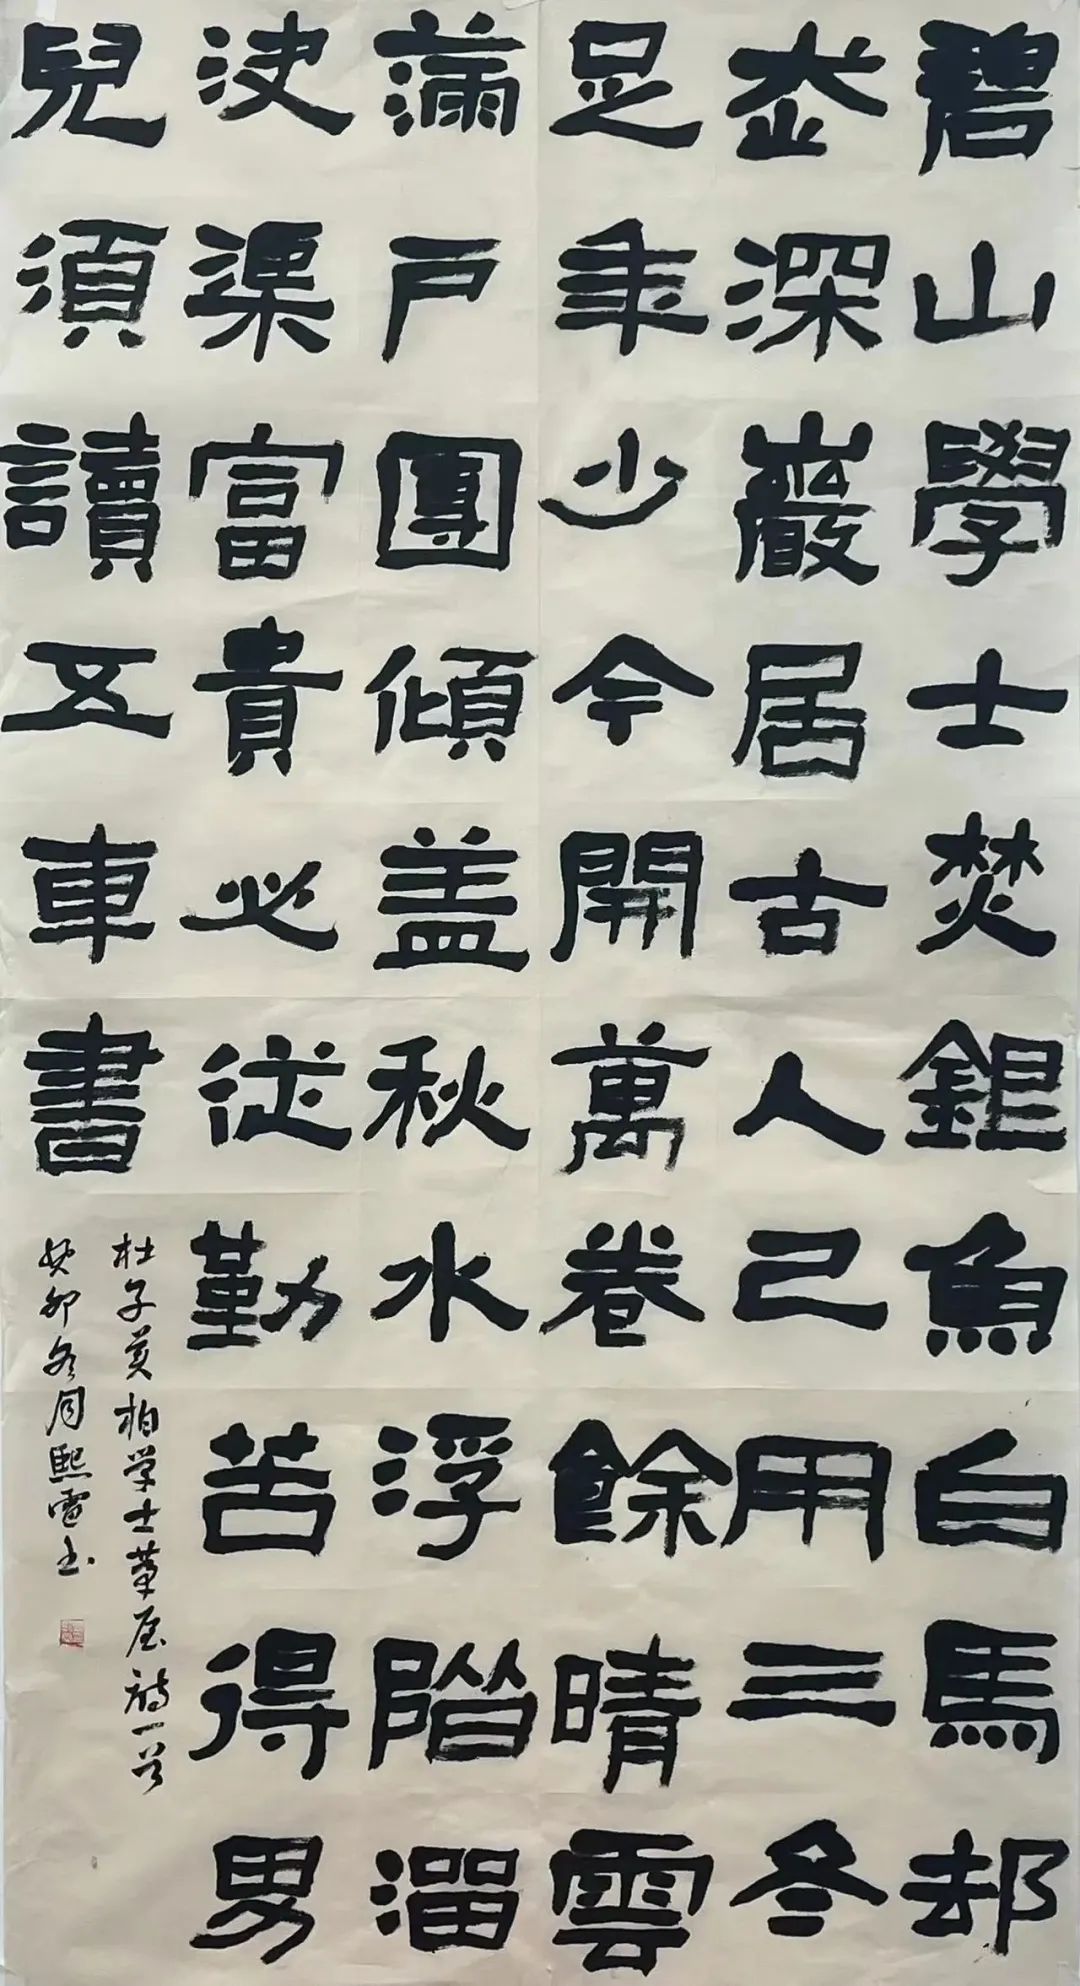 碧山學士焚銀魚白馬却
走深巖居古人已用三冬
足年少今開萬卷餘晴雲
滿戶團傾盖秋水浮階溜
決渠富貴必従勤苦得男
兒須讀五車書
杜子美柏学士茅屋詩一首
癸卯冬月熙书